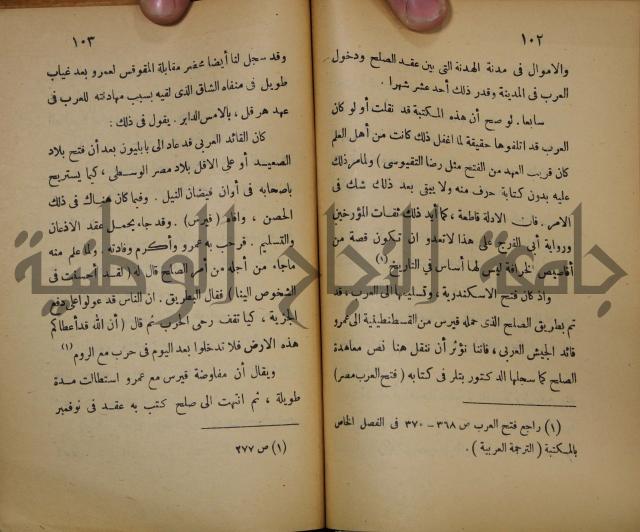 ١٠٢
والاموال فى مدنة الهدنة التى بين عقد الصلح ودخول
العرب فى المدينة وقدر ذلك أحد عشر شهرا .
سابعا. لو صح أن هذه المكتبة قد نقلت أو لو كان
العرب قد اتلفوها حقيقة لما اغفل ذلك كاتب من أهل العلم
كان قريب العهد من الفتح مثل (حنا النقيوسى) ولما مر ذلك
عليه بدون كتابة حرف منه ولا يبقى بعد ذلك شك فى
الامر. فان الادلة قاطعة ، كما أيد ذلك ثقات المؤرخين
ورواية أبى الفرج على هذا لا تعدو ان تكون قصة من
أقاصيص الخرافة ليس لها أساس فى التاريخ (١)
واذ كان فتح الاسكندرية ، وتسليمها الى العرب ، قد
تم بطريق الصلح الذى حمله قيرس من القسطنطينية الى عمرو
قائد الجيش العربى ، فاننا نؤثر أن ننقل هنا نص معاهدة
الصلح كما سجلها الدكتور بتلر فى كتابه ( فتح العرب مصر )
(١) راجع فتح العرب ص ٣٦٨ - ٣٧٠ فى الفصل الخاص
بالمكتبة ( الترجمة العربية ) .
١٠٣
وقد سجل لنا أيضا محضر مقابلة المقوقس لعمرو بعد غياب
طويل فى منفاه الشاق الذى لقيه بسبب مهادنته للعرب فى
عهد هرقل ، بالامس الدابر . يقول فى ذلك :
كان القائد العربى قد عاد الى بابليون بعد أن فتح بلاد
الصعيد أو على الاقل بلاد مصر الوسطى ، كيما يستريح
باصحابه فى أوان فيضان النيل . وفيما كان هناك فى ذلك
الحصن ، وافاه (قيرس) . وقد جاء يحمل عقد الاذعان
والتسليم . فرحب به عمرو وأكرم وفادته . ولما علم منه
ماجاء من أجله من أمر الصلح قال له ( لقد أحسنت فى
الشخوص الينا ) فقال البطريق . ان الناس قد عولوا على دفع
الجزية ، كيا تقف رحى الحرب ثم قال ( أن الله قد أعطاكم
هذه الارض فلا تدخلوا بعد اليوم فى حرب مع الروم (١)
ويقال أن مفاوضة قيرس مع عمرو استطالت مدة
طويلة ، ثم انتهت الى صلح كتب به عقد فى نوفمبر
(١) ص ٢٧٧
جامعة النجاح الوطنية